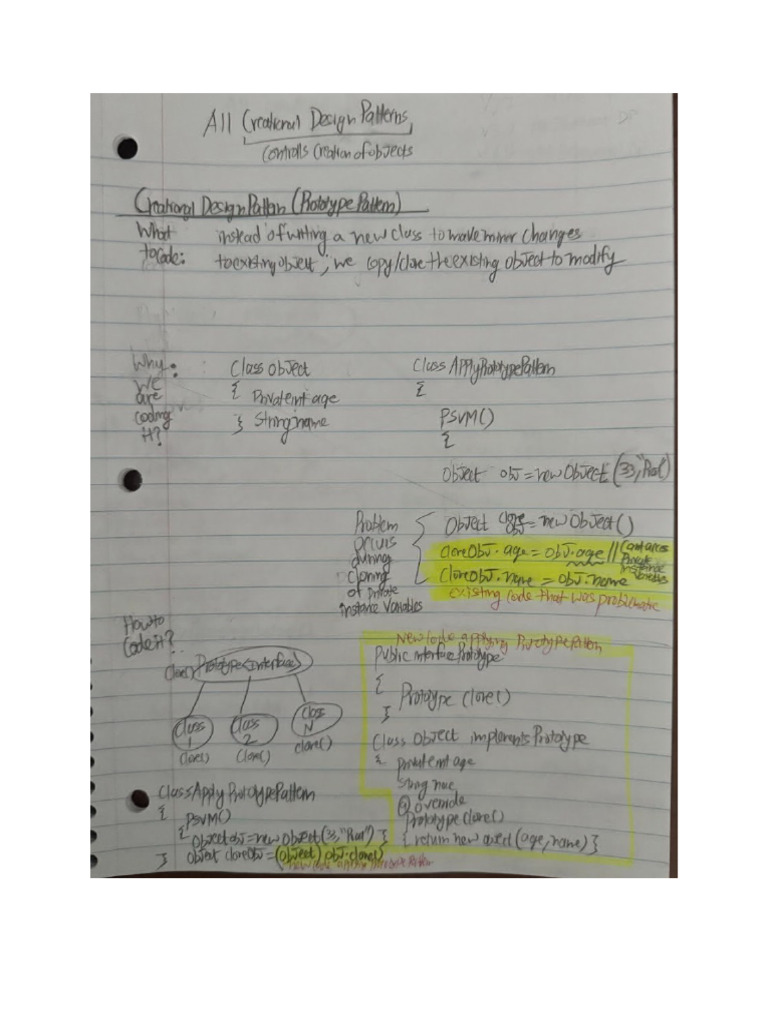 All Creational Design Patterns
Controls Creation of objects
Creational Design Pattern (Prototype Pattern)
What to code:
instead of writing a new class to make minor changes
to existing object, we copy/clone the existing object to modify
Why we are coding it?
Class Object
{ Private int age
} String name
Class ApplyPrototypePattern
{
PSVM()
{
Object obj = new Object(33,"
Problem occurs during cloning of private instance variables
Object clone obj = new Object()
cloneObj.age = obj.age // private instance variables
cloneObj.name = obj.name
existing code that was problematic
How to code it?
clone() Prototype(interface)
Class 1
Class 2
Class N
clone()
clone()
clone()
New code applying Prototype Pattern
Public interface Prototype
{
Prototype clone()
}
Class Object implements Prototype
{ private int age
String name
@override
Prototype clone()
{ return new object(age, name) }
Class ApplyPrototypePattern
{
PSVM()
{ Object obj = new Object(33,"
} Object cloneObj = (object) obj.clone()
new code applying prototype pattern